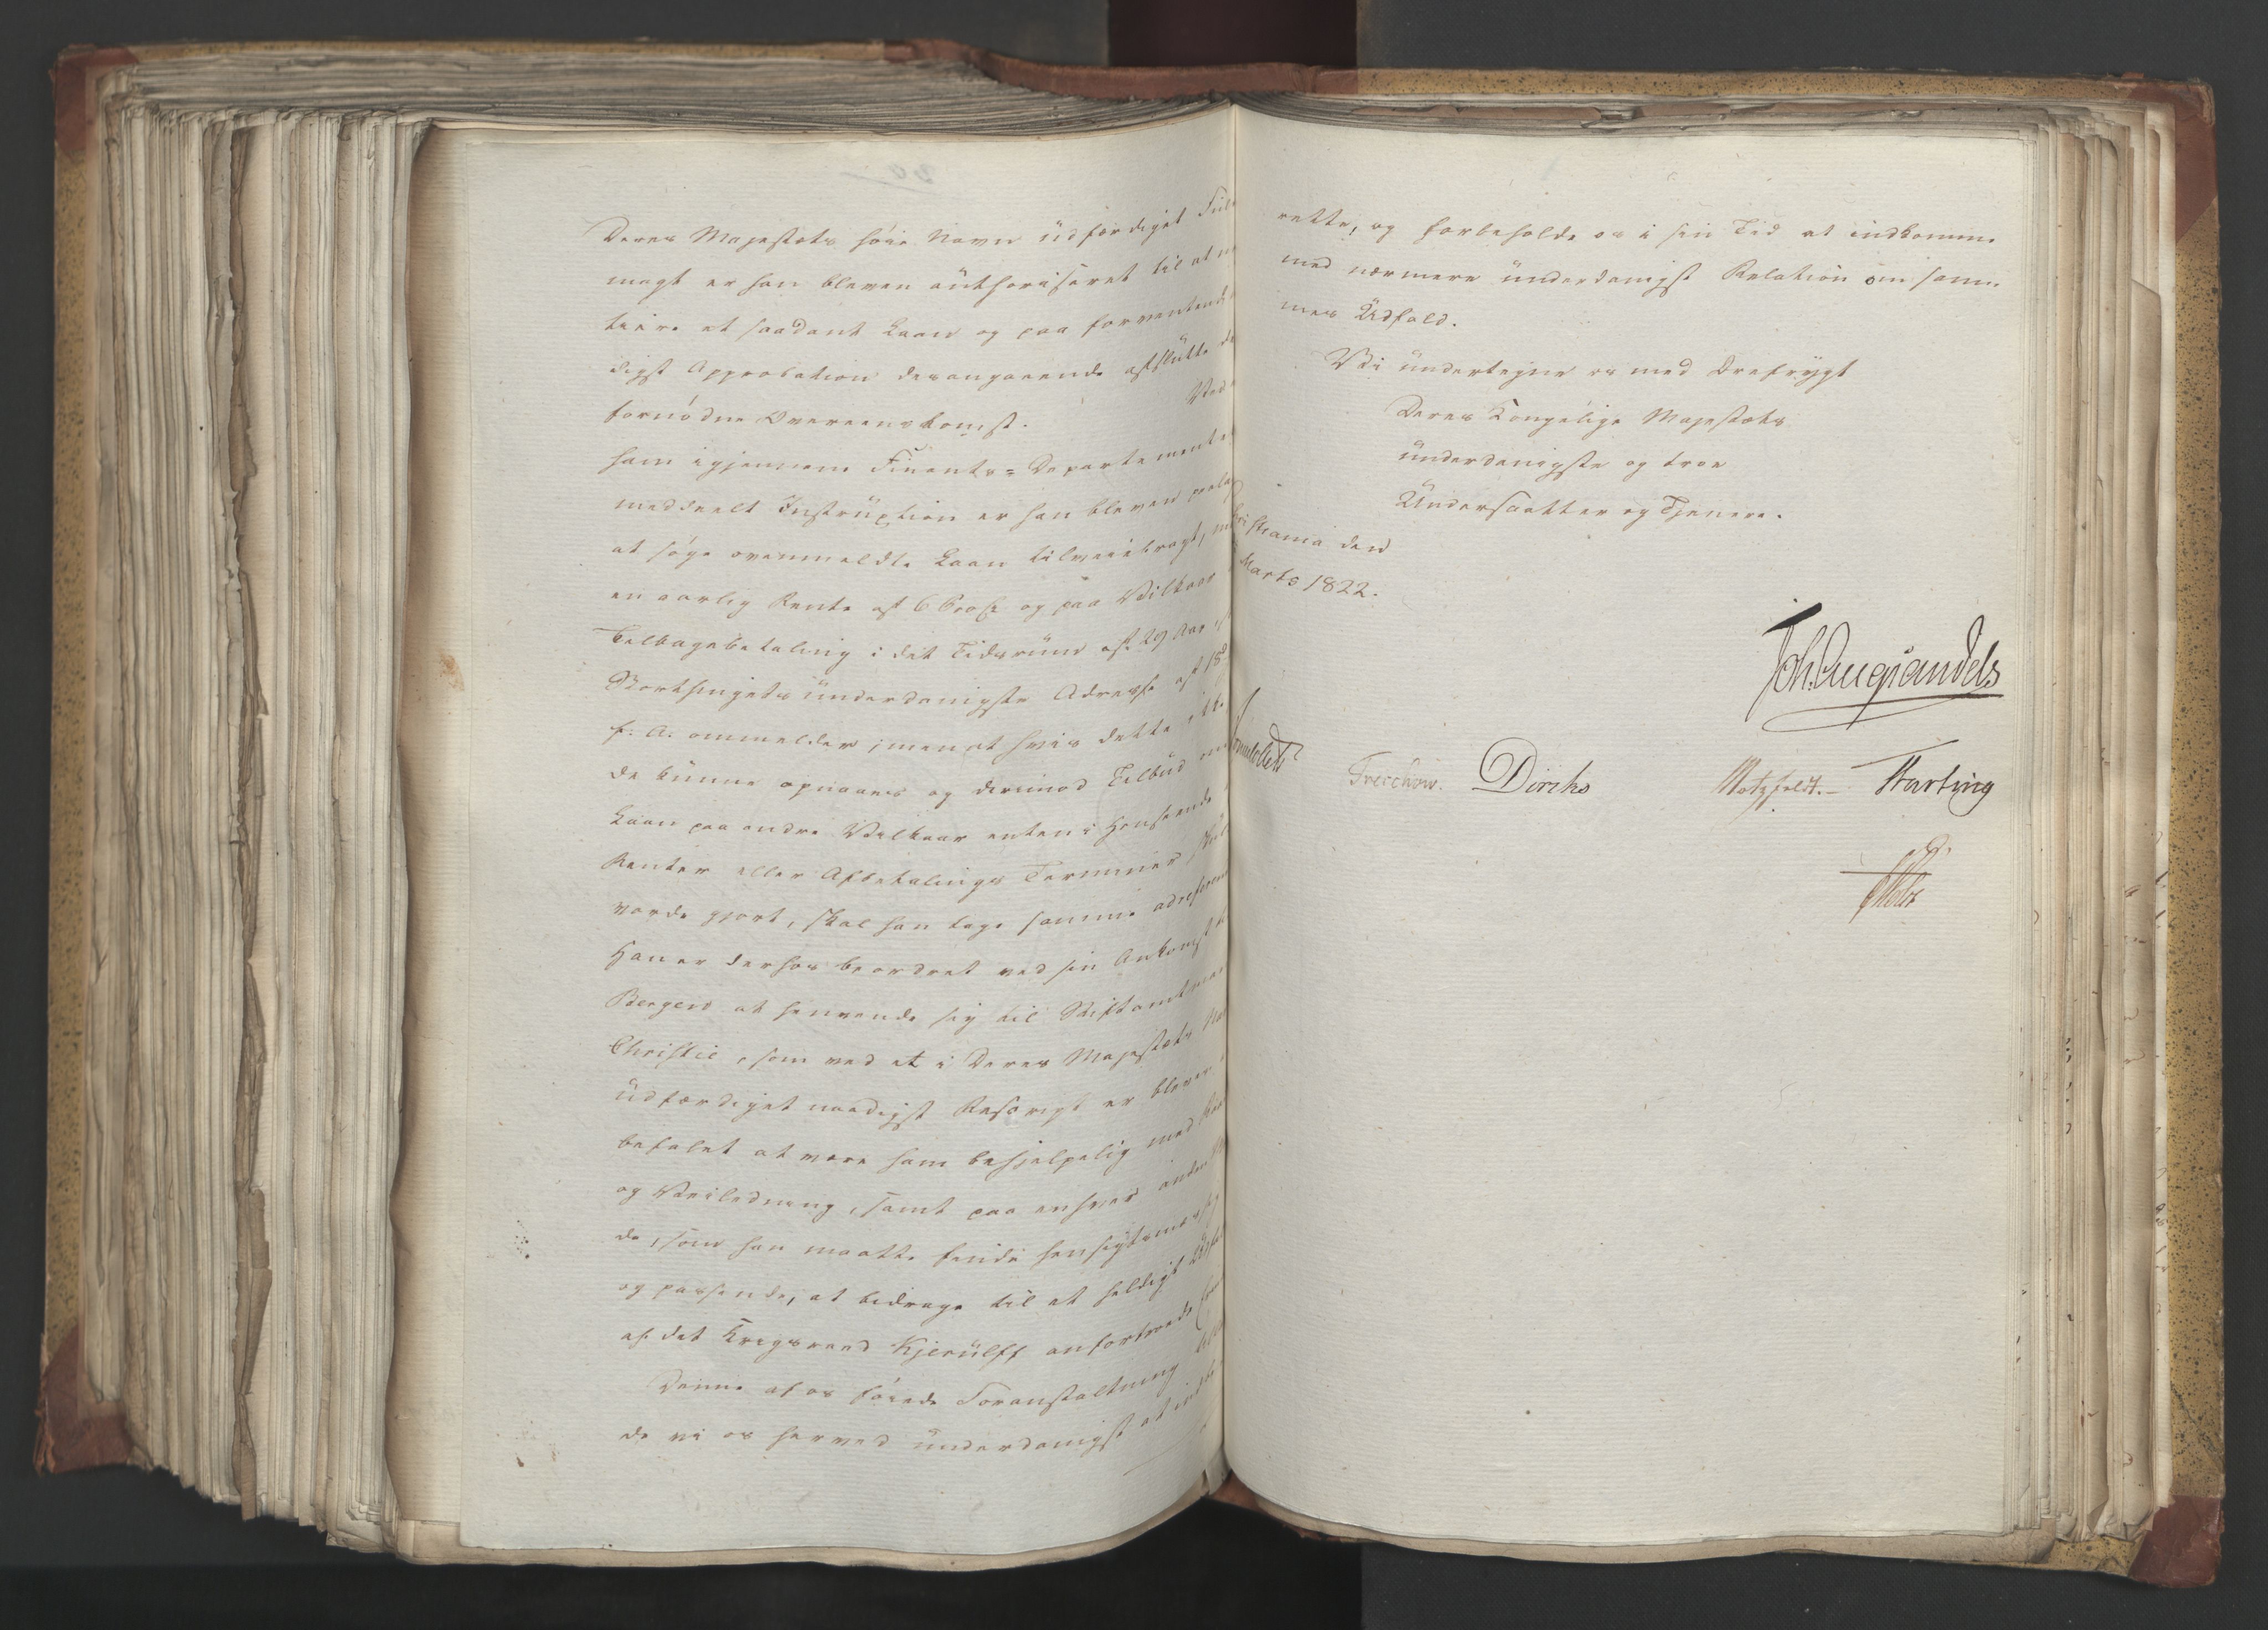 Deres Majestæts höie Navn üdfærdiget Füld
magt er han bleven aüthoriseret til at
tiere et saadant Laan og paa forventende
digst Approbation desangaaende afslütte
fornödne Overeenskomst. Ved
ham igjennem Finants=Departementet
meddeelt Instrüxtion er han bleven paalagt
at söge ovenmeldte Laan tilveiebragt,
en aarlig Rente af 6 Procst og paa Vilkaar
Tilbagebetaling i det Tidsrüm af 29 Aar
Storthingets ünderdanigste Adresse af 18de
f: A: ommelder; men at hvis dette ikke
de künne opnaaes og derimod Tilbüd om
Laan paa andre Vilkaar enten i Henseende
Renter eller Afbetalings Terminer
vorde gjort, skal han tage samme adreferend
Han er derhos beordret ved sin Ankomst til
Bergen at henvende sig til Stiftamtmand
Christie, som ved et i Deres Majestæts
üdfærdiget naadigst Rescript er bleven
befalet at være ham behjelpelig med Raad
og Veiledning, samt paa enhver anden
de, som han maatte finde hensigtsmæssig
og passende, at bidrage til et heldigt Udfald
af det Krigsraad Kjerülff anfortroede
Denne af os föiede Foranstaltning
de vi os herved ünderdanigst at indbe
rette, og forbeholde os i sin Tid at indkomme
med nærmere ünderdanigst Relation om sam-
mes Udfald.
Vi ündertegne os med Ærefrygt
Deres Kongelige Majestæts
ünderdanigste og troe
Undersaatter og Tjenere.
Christiania den
Marts 1822.
Joh. Aug. Sandels
Sommerhielm
Treschow. Diriks Motzfeldt. Harting
Holst